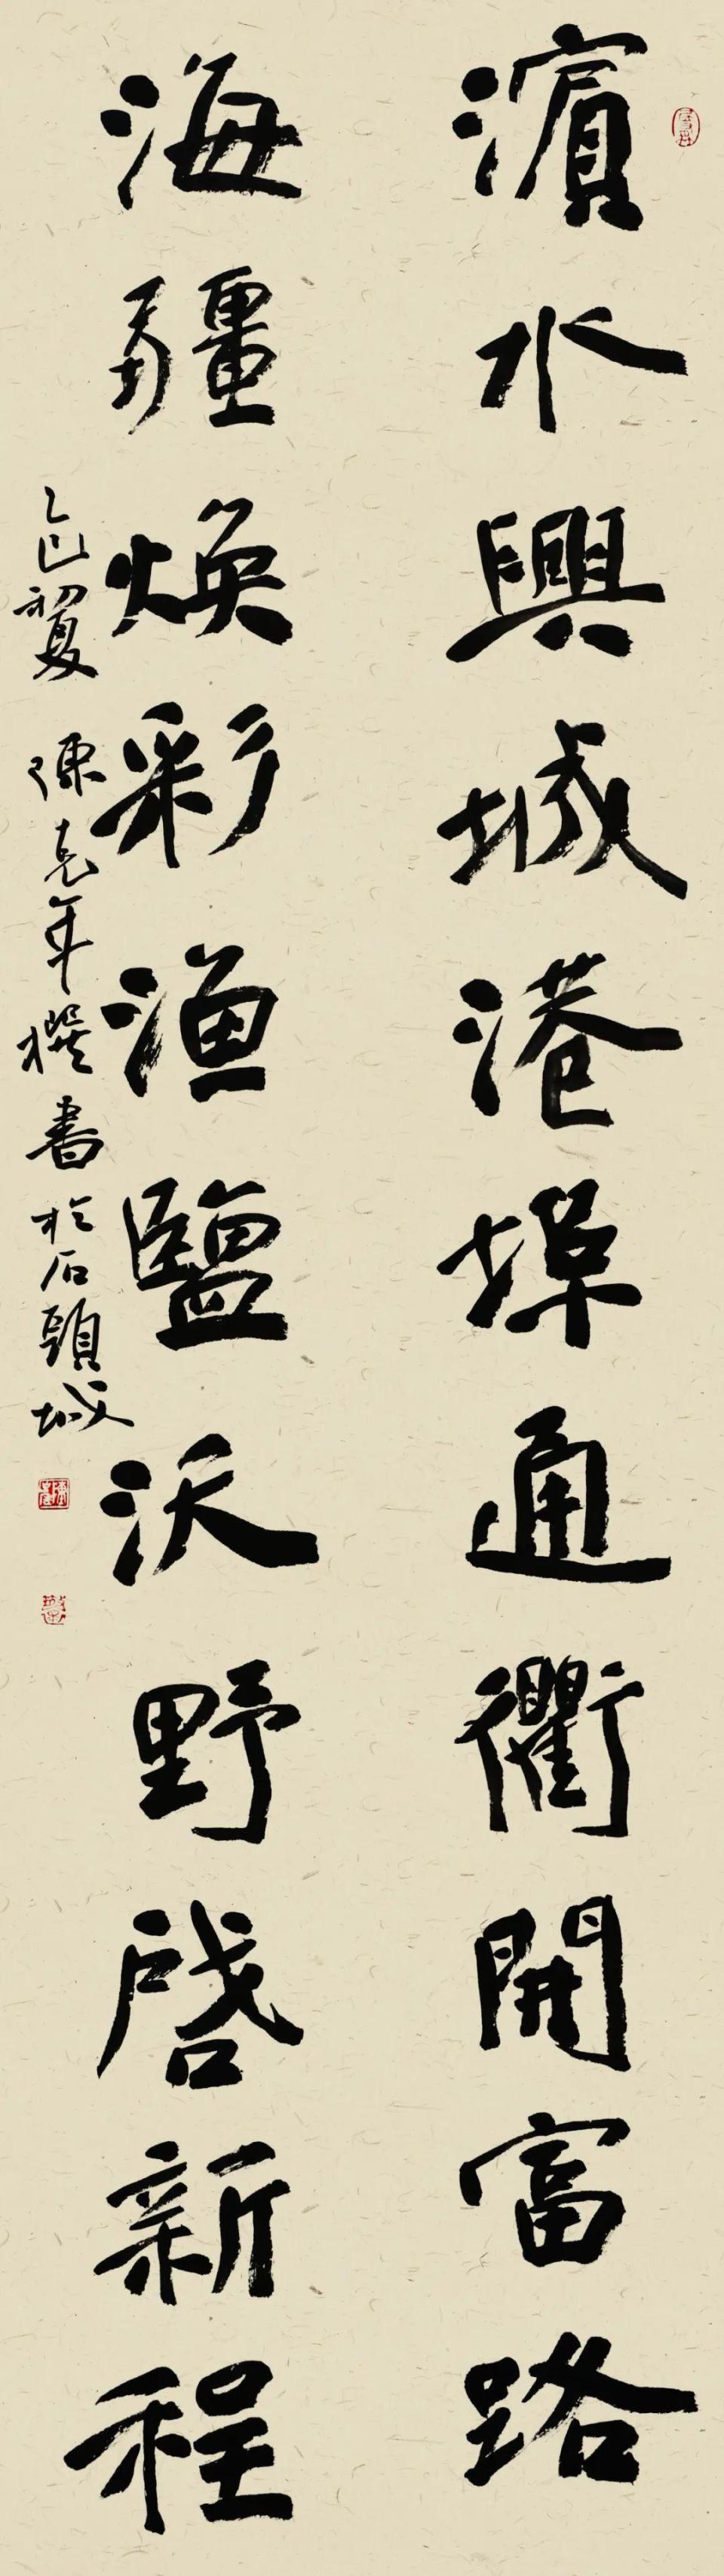 濱水興城港埠通衢開富路
海疆煥彩漁鹽沃野啓新程
乙巳初夏 陳克年撰書於石頭城